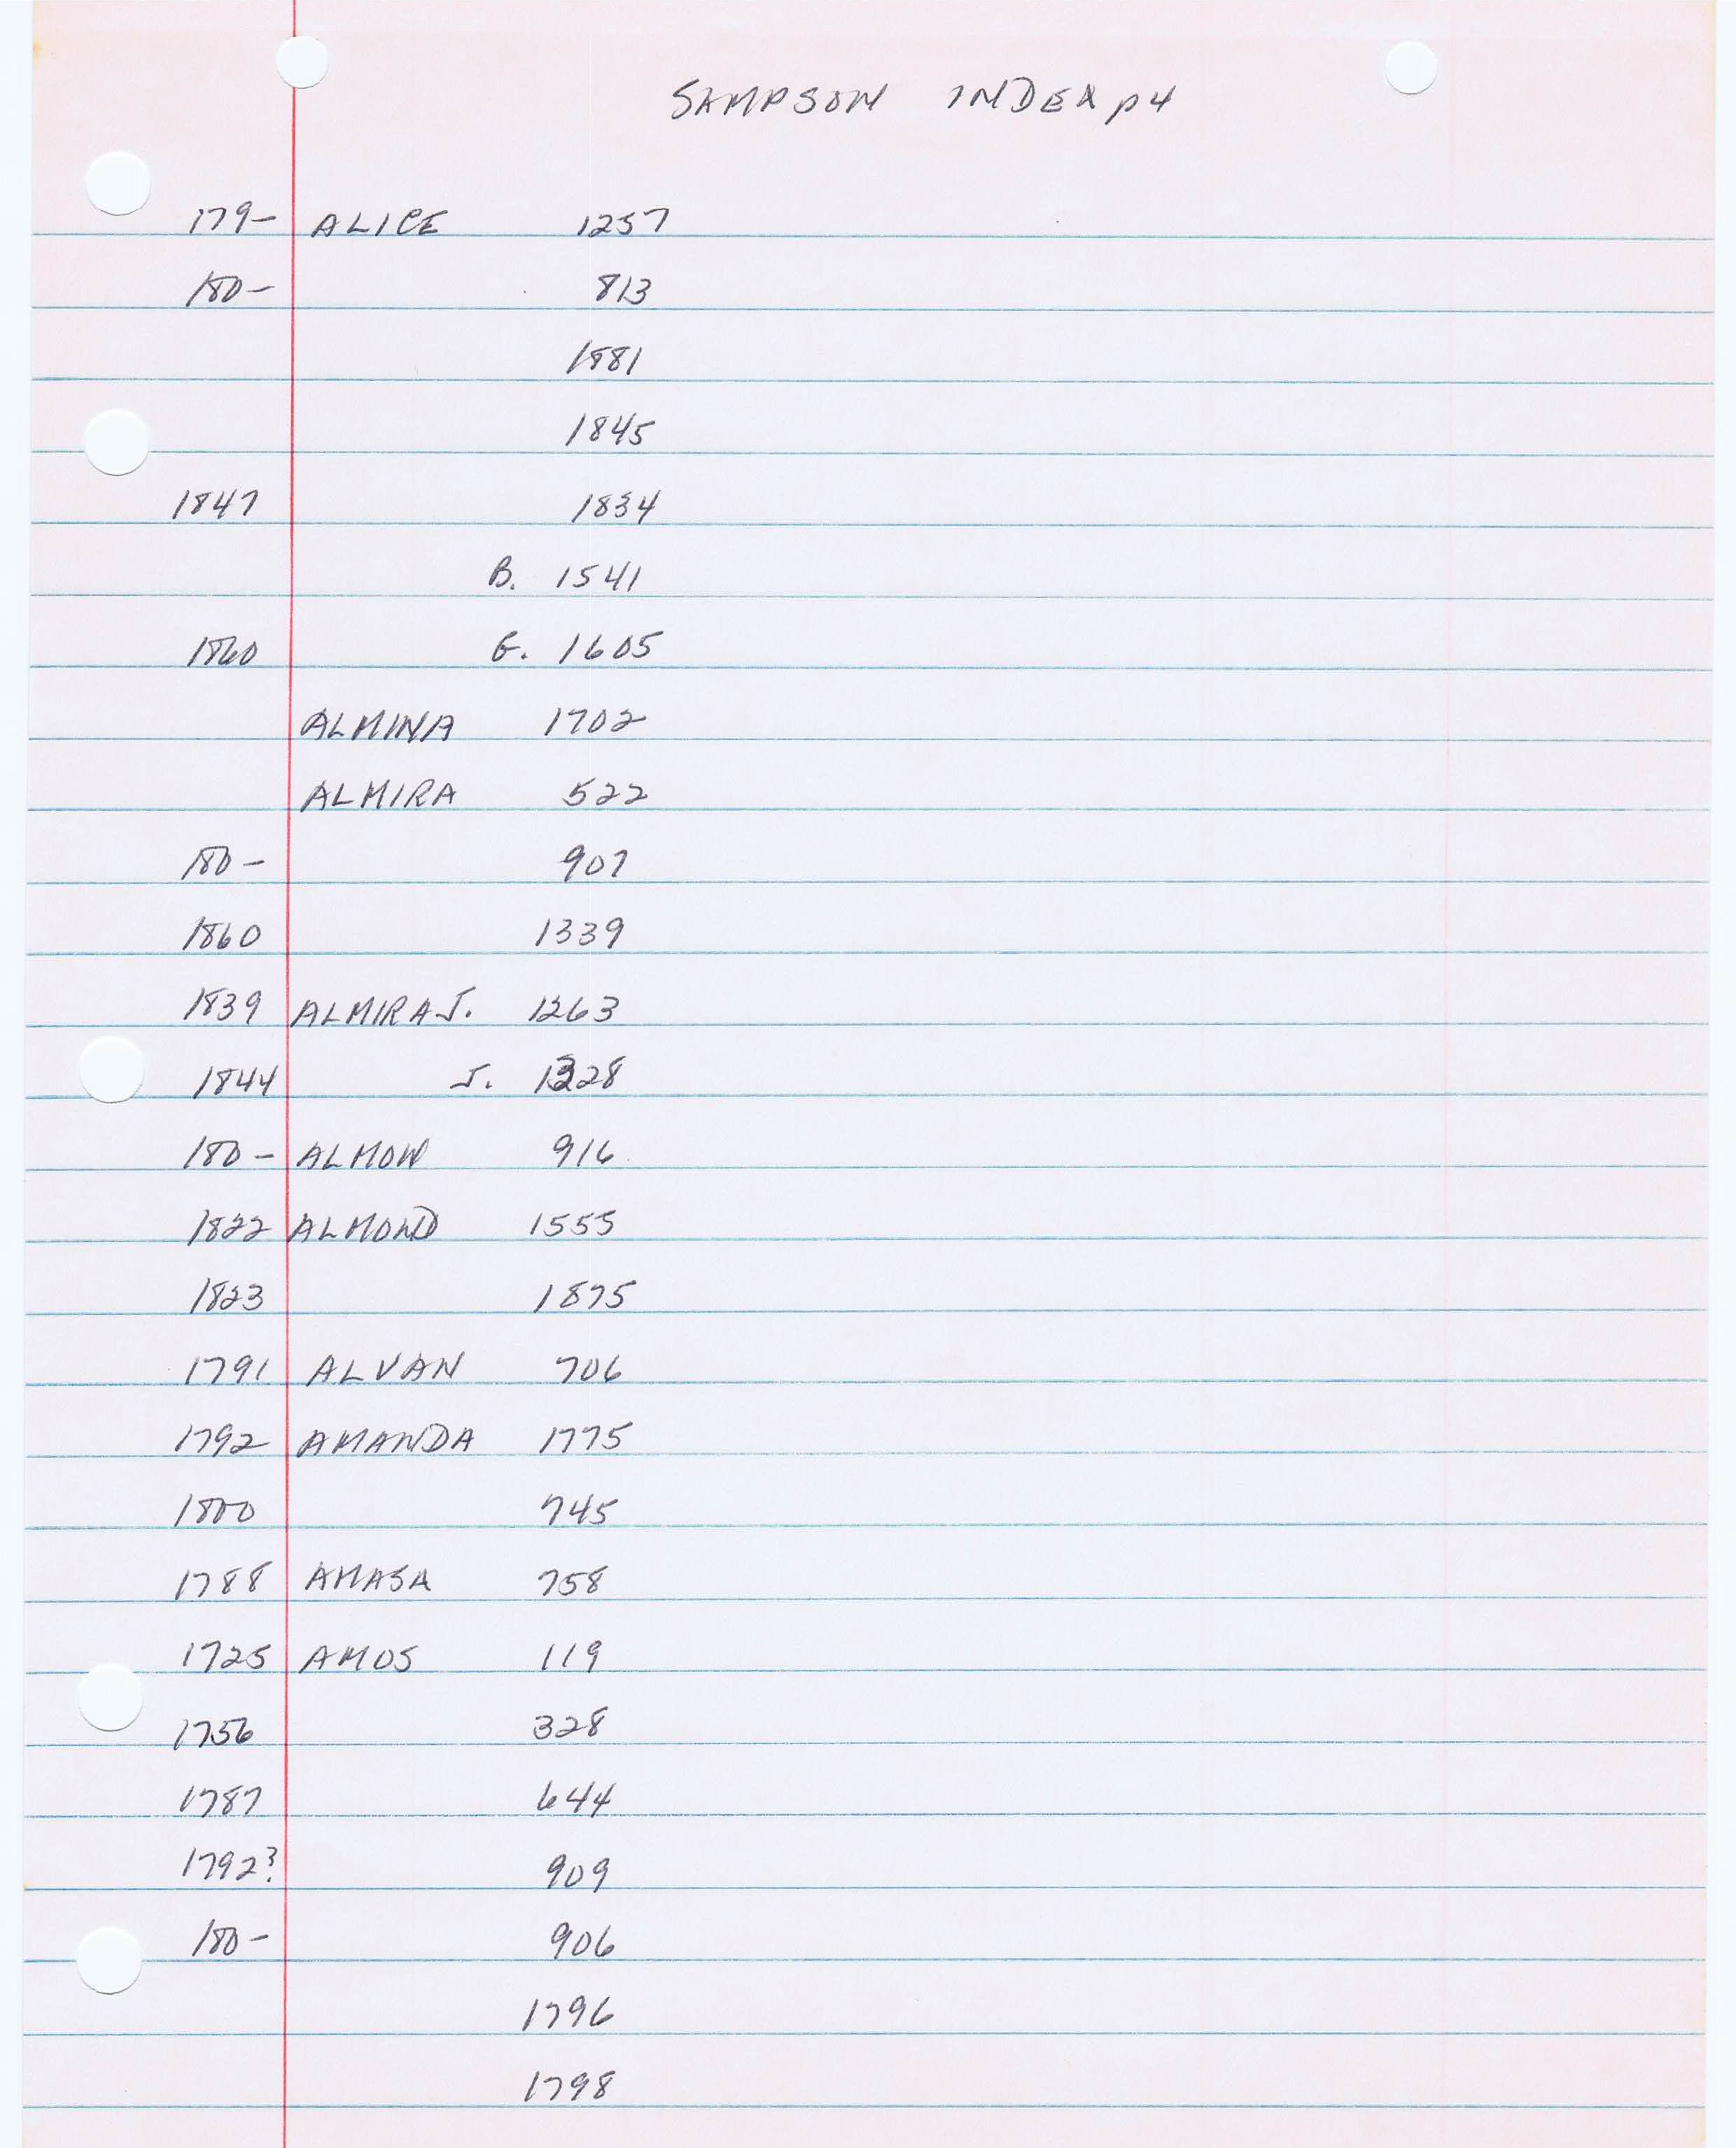 SAMPSON INDEX p4
179- ALICE 1257
180- 813
1881
1845
1847 1834
B. 1541
1860 G. 1605
ALMINA 1702
ALMIRA 522
180- 907
1860 1339
1839 ALMIRA J. 1263
1844 J. 1328
180- ALMON 916
1822 ALMOND 1555
1823 1875
1791 ALVAN 706
1792 AMANDA 1775
1800 745
1788 AMASA 758
1725 AMOS 119
1756 328
1787 644
1792? 909
180- 906
1796
1798